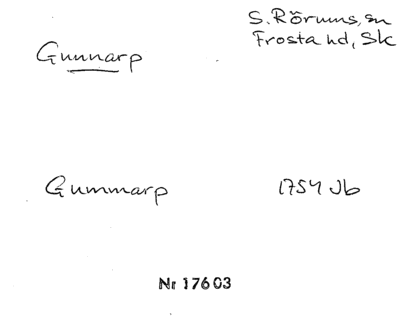 S. Rörums, sn
Frosta hd, Sk
Gunnarp
Gummarp 1754 Jb
Nr 17603